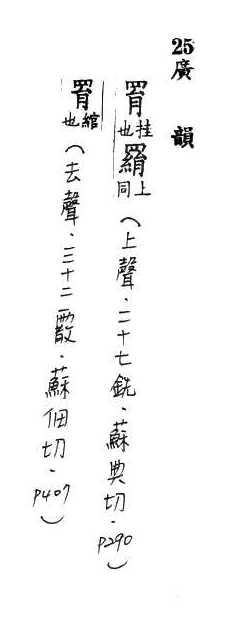 25廣韻
罥挂也羂上同(上聲.二十七銑.蘇典切.P290)
罥綰也(去聲.三十二霰.蘇佃切.P407)